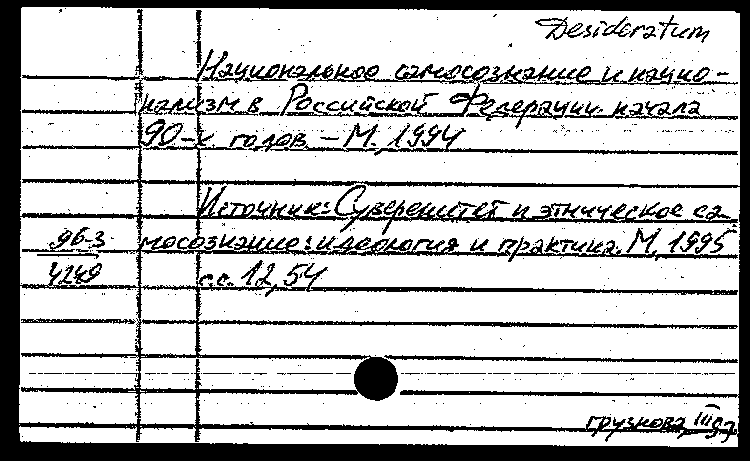 Desideratum
Национальное самосознание и нацио-
нализм в Российской Федерации начала
90-х годов. – М., 1994
Источник: Суверенитет и этническое са-
96-3 мосознание: идеология и практика. М., 1995
4249 с.с. 12, 54
грузнова, III 97